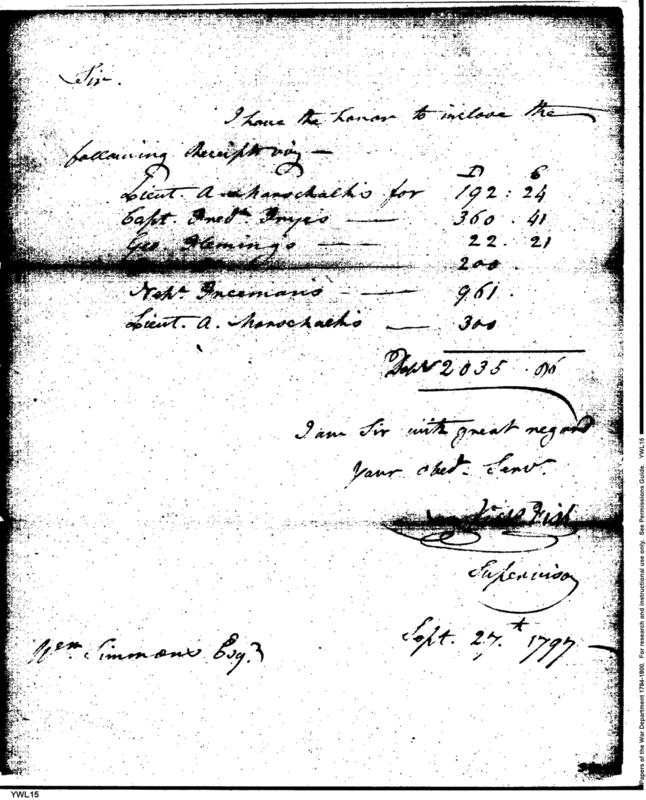 Sir.
I have the honor to inclose the
following Receipts viz —
D C
Lieut. A Marschalks for 192 : 24
Capt. Fredk Fryes — 360 . 41
Geo Flemings — 22 . 21
200 .
Nehh Freemans — 961 .
Lieut. A. Marschalks — 300
2035 . 86
I am Sir with great regard
Your obedt. Servt.
Nichs Fish
Supervisor
Sept. 27.t 1797 —
Wm Simmons Esqr
Papers of the War Department 1784-1800. For research and instructional use only. See Permissions Guide. YWL15
YWL15